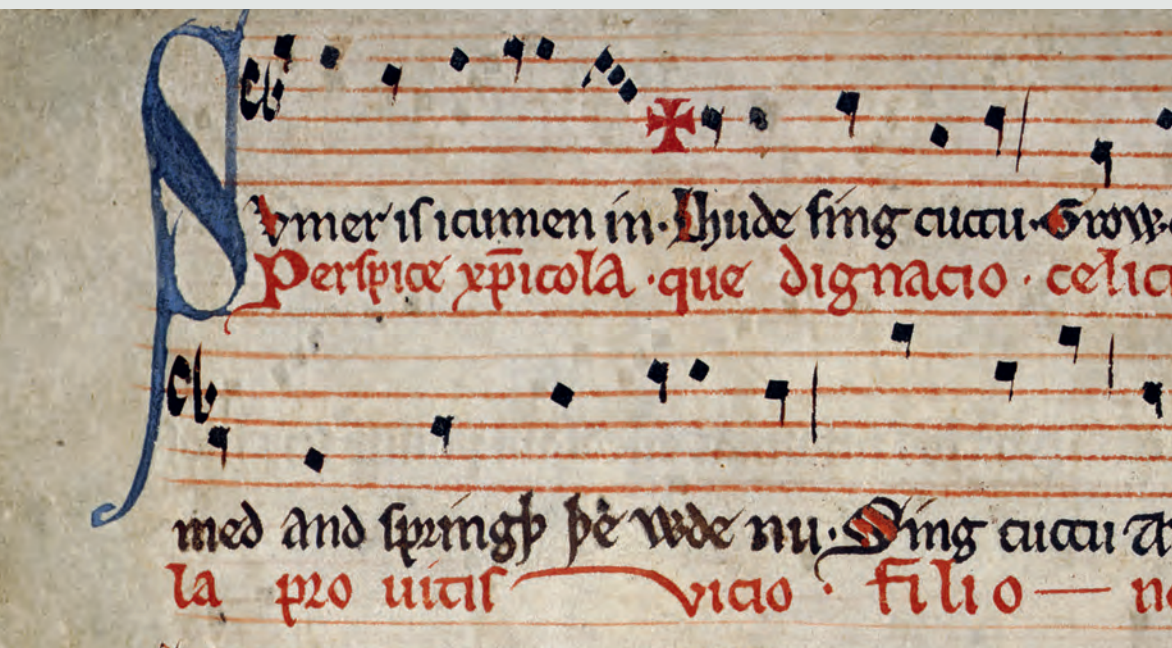 Svmer is icumen in· Lhude sing cuccu· Growe
Perspice xp̄icola· que dignacio· celic
med and springþ þe wde nu· Sing cuccu
la pro uitis vicio· filio —